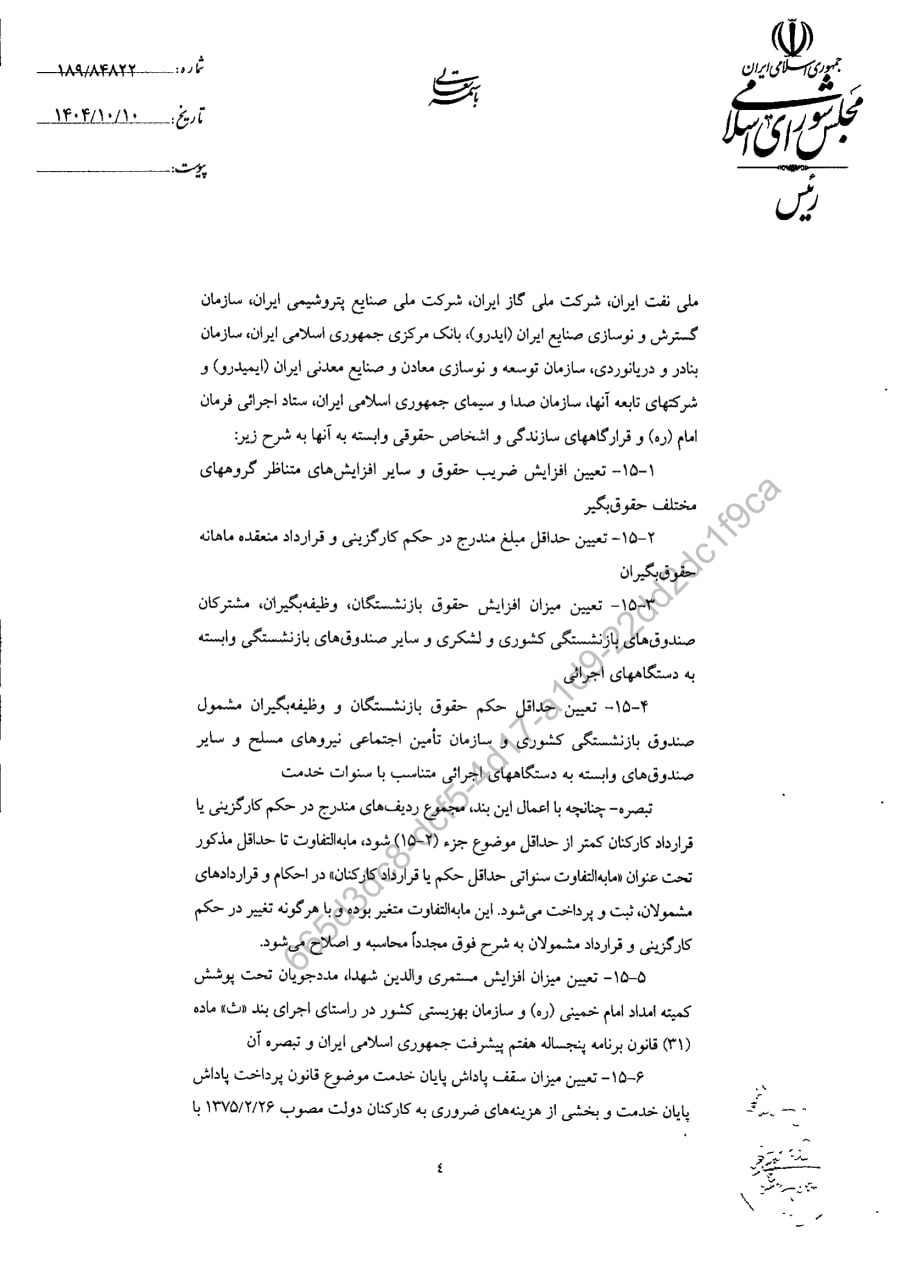 جمهوری اسلامی ایران
مجلس شورای اسلامی
رئیس
باسمه تعالی
شماره: ۱۸۹/۸۴۸۲۲
تاریخ: ۱۴۰۴/۱۰/۱۰
پیوست:
ملی نفت ایران، شرکت ملی گاز ایران، شرکت ملی صنایع پتروشیمی ایران، سازمان
گسترش و نوسازی صنایع ایران (ایدرو)، بانک مرکزی جمهوری اسلامی ایران، سازمان
بنادر و دریانوردی، سازمان توسعه و نوسازی معادن و صنایع معدنی ایران (ایمیدرو) و
شرکتهای تابعه آنها، سازمان صدا و سیمای جمهوری اسلامی ایران، ستاد اجرائی فرمان
امام (ره) و قرارگاههای سازندگی و اشخاص حقوقی وابسته به آنها به شرح زیر:
۱۵-۱- تعیین افزایش ضریب حقوق و سایر افزایش‌های متناظر گروههای
مختلف حقوق‌بگیر
۱۵-۲- تعیین حداقل مبلغ مندرج در حکم کارگزینی و قرارداد منعقده ماهانه
حقوق‌بگیران
۱۵-۳- تعیین میزان افزایش حقوق بازنشستگان، وظیفه‌بگیران، مشترکان
صندوق‌های بازنشستگی کشوری و لشکری و سایر صندوق‌های بازنشستگی وابسته
به دستگاههای اجرائی
۱۵-۴- تعیین حداقل حکم حقوق بازنشستگان و وظیفه‌بگیران مشمول
صندوق بازنشستگی کشوری و سازمان تأمین اجتماعی نیروهای مسلح و سایر
صندوق‌های وابسته به دستگاههای اجرائی متناسب با سنوات خدمت
تبصره- چنانچه با اعمال این بند، مجموع ردیف‌های مندرج در حکم کارگزینی یا
قرارداد کارکنان کمتر از حداقل موضوع جزء (۲-۱۵) شود، مابه‌التفاوت تا حداقل مذکور
تحت عنوان «مابه‌التفاوت سنواتی حداقل حکم یا قرارداد کارکنان» در احکام و قراردادهای
مشمولان، ثبت و پرداخت می‌شود. این مابه‌التفاوت متغیر بوده و با هرگونه تغییر در حکم
کارگزینی و قرارداد مشمولان به شرح فوق مجدداً محاسبه و اصلاح می‌شود.
۱۵-۵- تعیین میزان افزایش مستمری والدین شهدا، مددجویان تحت پوشش
کمیته امداد امام خمینی (ره) و سازمان بهزیستی کشور در راستای اجرای بند «ث» ماده
(۳۱) قانون برنامه پنجساله هفتم پیشرفت جمهوری اسلامی ایران و تبصره آن
۱۵-۶- تعیین میزان سقف پاداش پایان خدمت موضوع قانون پرداخت پاداش
پایان خدمت و بخشی از هزینه‌های ضروری به کارکنان دولت مصوب ۱۳۷۵/۲/۲۶ با
٤
665d3dc8-dcf5-4d17-a1d9-22dd2dc1f9ca